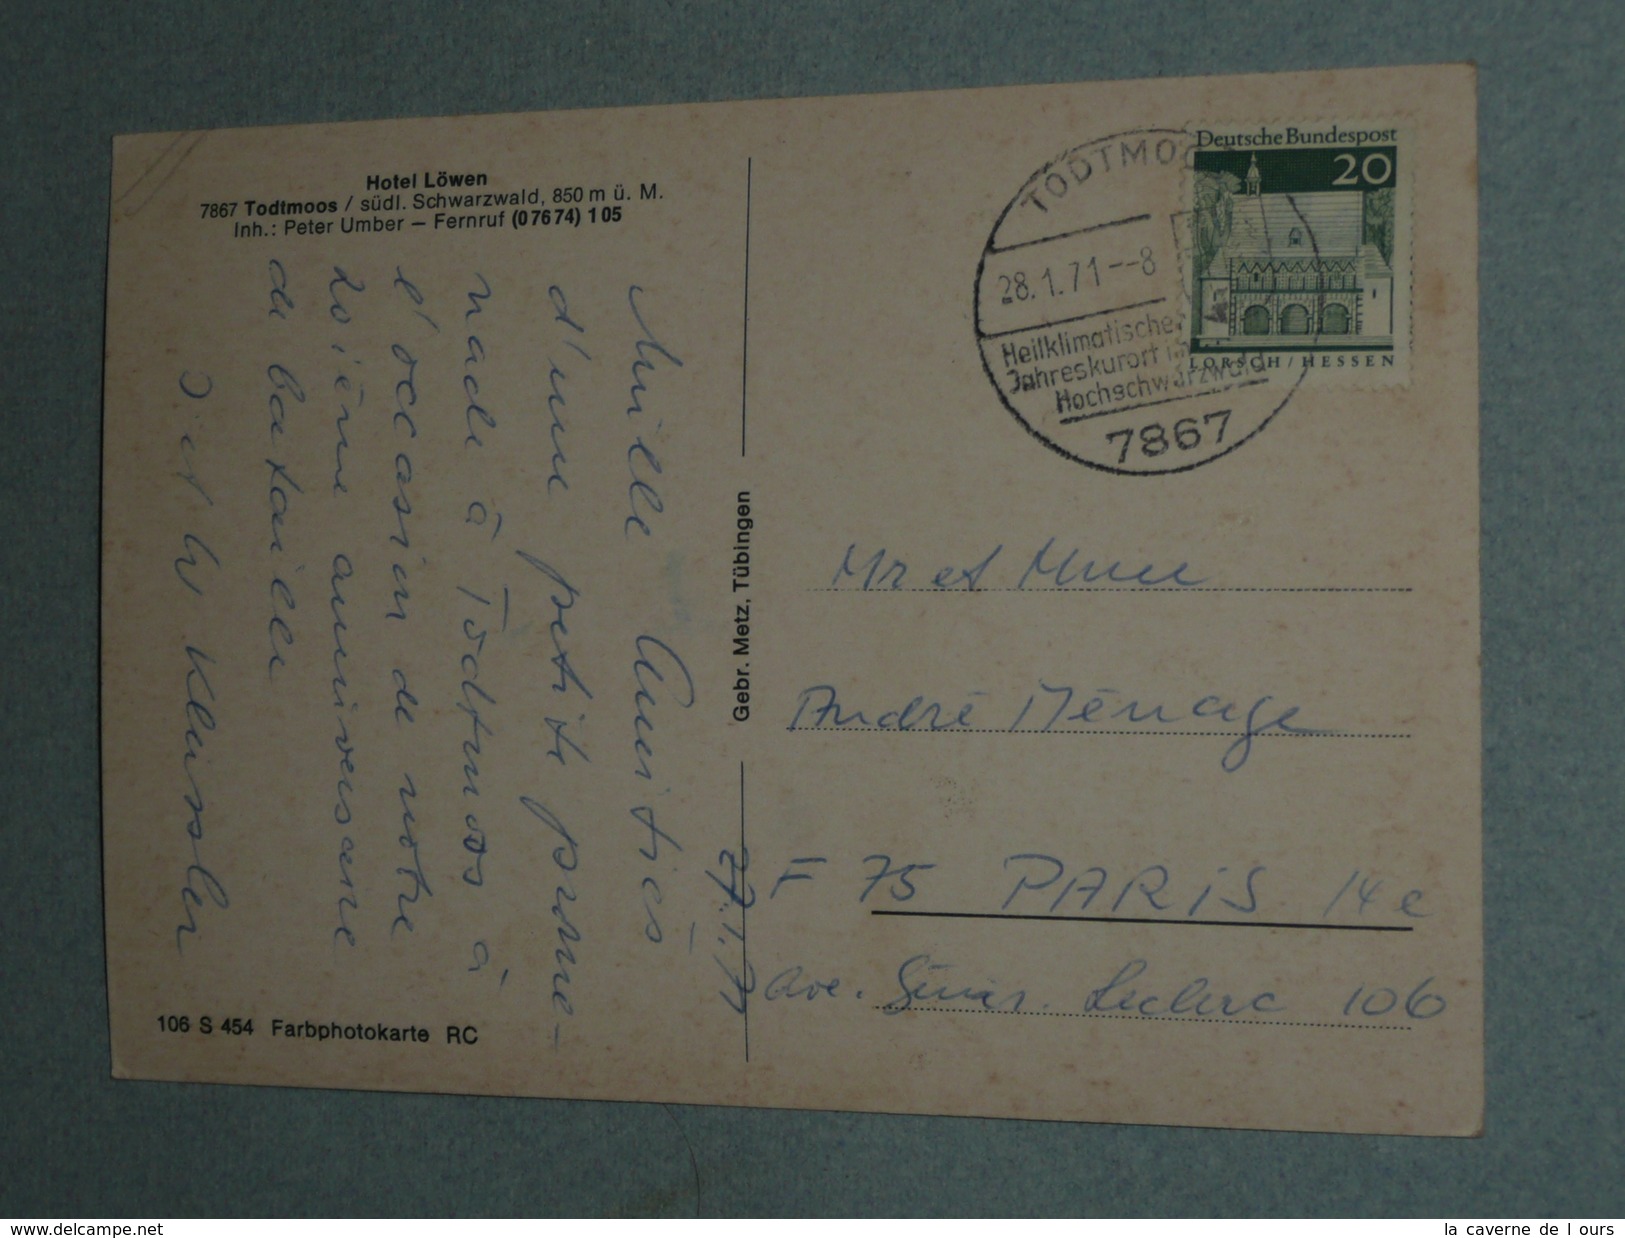 Hotel Löwen
7867 Todtmoos / südl. Schwarzwald, 850 m ü. M.
Inh.: Peter Umber – Fernruf (07674) 1 05
27.1.71
Mille Amitiés
d'une petite prome-
nade à Todtmoos à
l'occasion de notre
20ième anniversaire
de bataille
et W Kleissler
106 S 454 Farbphotokarte RC
Gebr. Metz, Tübingen
TODTMOOS
28.1.71--8
Heilklimatischer
Jahreskurort im
Hochschwarzwald
7867
Deutsche Bundespost
20
LORSCH / HESSEN
Mr et Mme
André Ménage
F 75 PARIS 14e
Ave. Leclerc 106
www.delcampe.net
la caverne de l ours